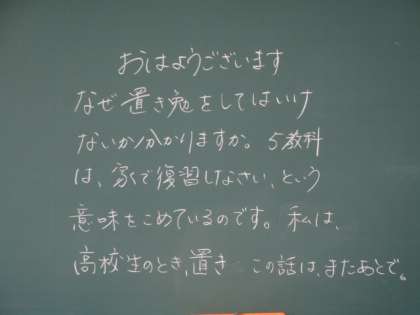 おはようございます
なぜ置き勉をしてはいけ
ないか分かりますか。5教科
は、家で復習しなさい、という
意味をこめているのです。私は、
高校生のとき、置き この話は、またあとで。